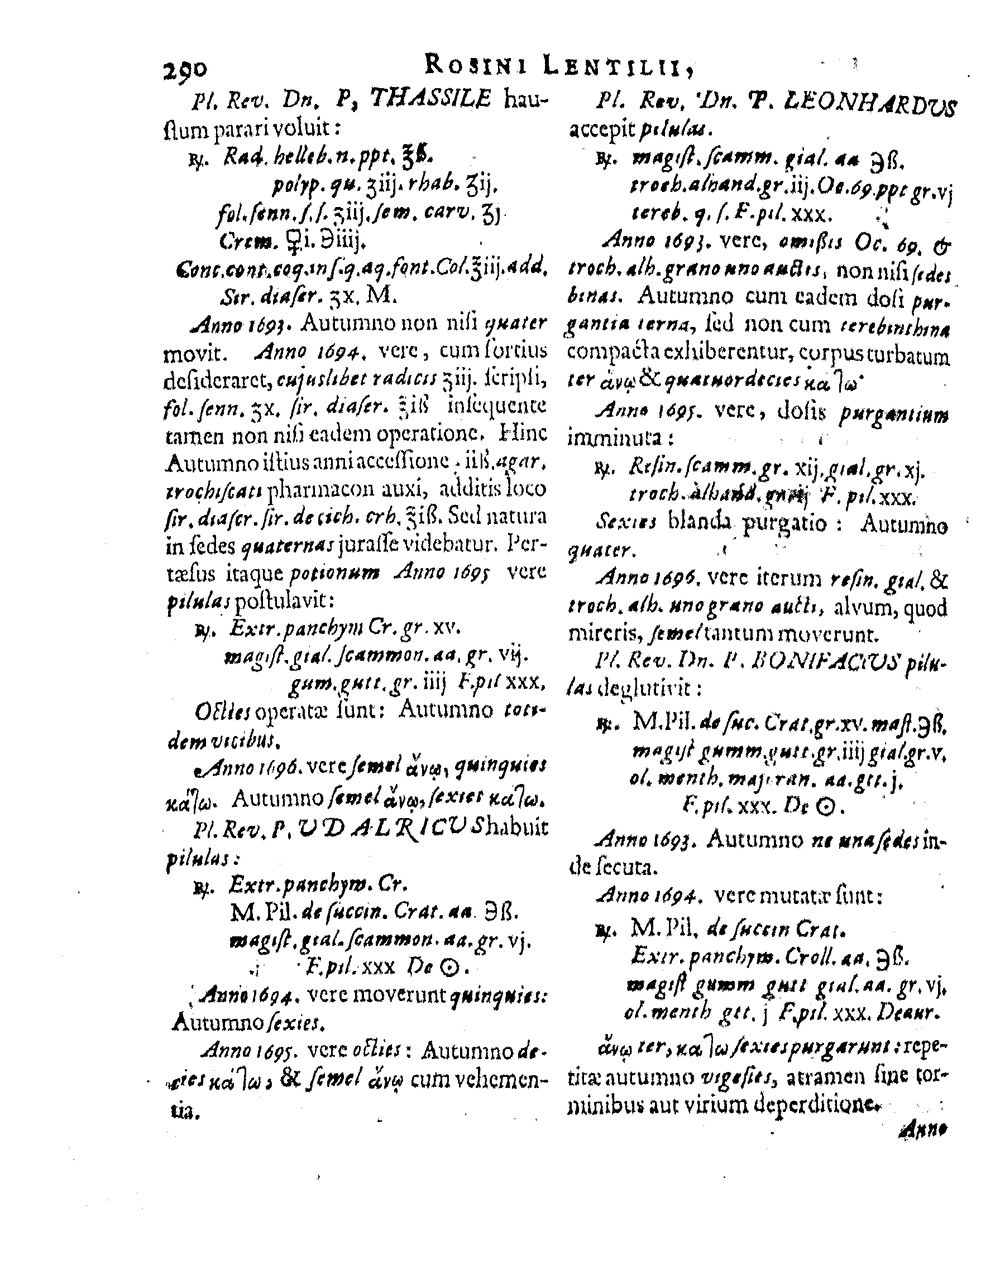 290 ROSINI LENTILII,
Pl. Rev. Dn. P, THASSILE hau-
ſtum parari voluit:
℞. Rad. helleb. n. ppt. ʒß.
polyp. qu. ʒiij. rhab. ʒij.
fol. ſenn. ſ. ſ. ʒiij. ſem. carv. ʒj
Crem. ♀i. ℈iiij.
Conc. cont. coq. in ſ. q. aq. font. Col. ℥iij. add.
Sir. diaſer. ʒx. M.
Anno 1693. Autumno non niſi quater
movit. Anno 1694. vere, cum fortius
deſideraret, cujuslibet radicis ʒiij. ſcripſi,
fol. ſenn. ʒx. ſir. diaſer. ℥iß inſequente
tamen non niſi eadem operatione. Hinc
Autumno iſtius anni acceſſione iiß. agar.
trochiſcati pharmacon auxi, additis loco
ſir. diaſer. ſir. de cich. erh. ℥iß. Sed natura
in ſedes quaternas juraſſe videbatur. Per-
tæſus itaque potionum Anno 1695 vere
pilulas poſtulavit:
℞. Extr. panchym Cr. gr. xv.
magiſt. gial. ſcammon. aa. gr. vij.
gum. gutt. gr. iiij F. pil xxx.
Octies operatæ ſunt: Autumno toti-
dem vicibus.
Anno 1696. vere ſemel ἄνω, quinquies
κάτω. Autumno ſemel ἄνω, ſexies κάτω.
Pl. Rev. P. UDALRICUS habuit
pilulas:
℞. Extr. panchym. Cr.
M. Pil. de ſuccin. Crat. aa ℈ß.
magiſt. gial. ſcammon. aa. gr. vj.
F. pil. xxx De ☉.
Anno 1694. vere moverunt quinquies:
Autumno ſexies.
Anno 1695. vere octies: Autumno de-
cies κάτω, & ſemel ἄνω cum vehemen-
tia.
Pl. Rev. Dn. P. LEONHARDUS
accepit pilulas.
℞. magiſt. ſcamm. gial. aa ℈ß.
troch. alhand. gr. iij. Oc. 69. ppt gr. vj
tereb. q. ſ. F. pil. xxx.
Anno 1693. vere, omißis Oc. 69. &
troch. alh. grano uno auctis, non niſi ſedes
binas. Autumno cum eadem doſi pur-
gantia terna, ſed non cum terebinthina
compacta exhiberentur, corpus turbatum
ter ἄνω & quatuordecies κάτω.
Anno 1695. vere, doſis purgantium
imminuta:
℞. Reſin. ſcamm. gr. xij. gial. gr. xj.
troch. alhand. F. pil. xxx.
Sexies blanda purgatio: Autumno
quater.
Anno 1696. vere iterum reſin. gial. &
troch. alh. uno grano aucti, alvum, quod
mireris, ſemel tantum moverunt.
Pl. Rev. Dn. P. BONIFACIUS pilu-
las deglutivit:
℞. M. Pil. de ſuc. Crat. gr. xv. maſt. ℈ß.
magiſt gumm. gutt. gr. iiij gial gr. v.
ol. menth. majoran. aa. gtt. j.
F. pil. xxx. De ☉.
Anno 1693. Autumno ne una ſedes in-
de ſecuta.
Anno 1694. vere mutatæ ſunt:
℞. M. Pil. de ſuccin Crat.
Extr. panchym. Croll. aa. ℈ß.
magiſt gumm gutt gial. aa. gr. vj.
ol. menth gtt. j F. pil. xxx. Deaur.
ἄνω ter, κάτω ſexies purgarunt: repe-
titæ autumno vigeſies, atramen ſine tor-
minibus aut virium deperditione.
Anno